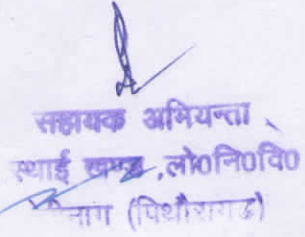 सहायक अभियन्ता
स्थाई खण्ड ,लो०नि०वि०
(पिथौरागढ)